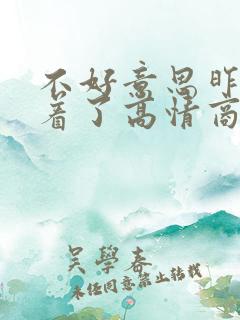 不好意思昨
着了高情商
吴學春
未经同意禁止转载